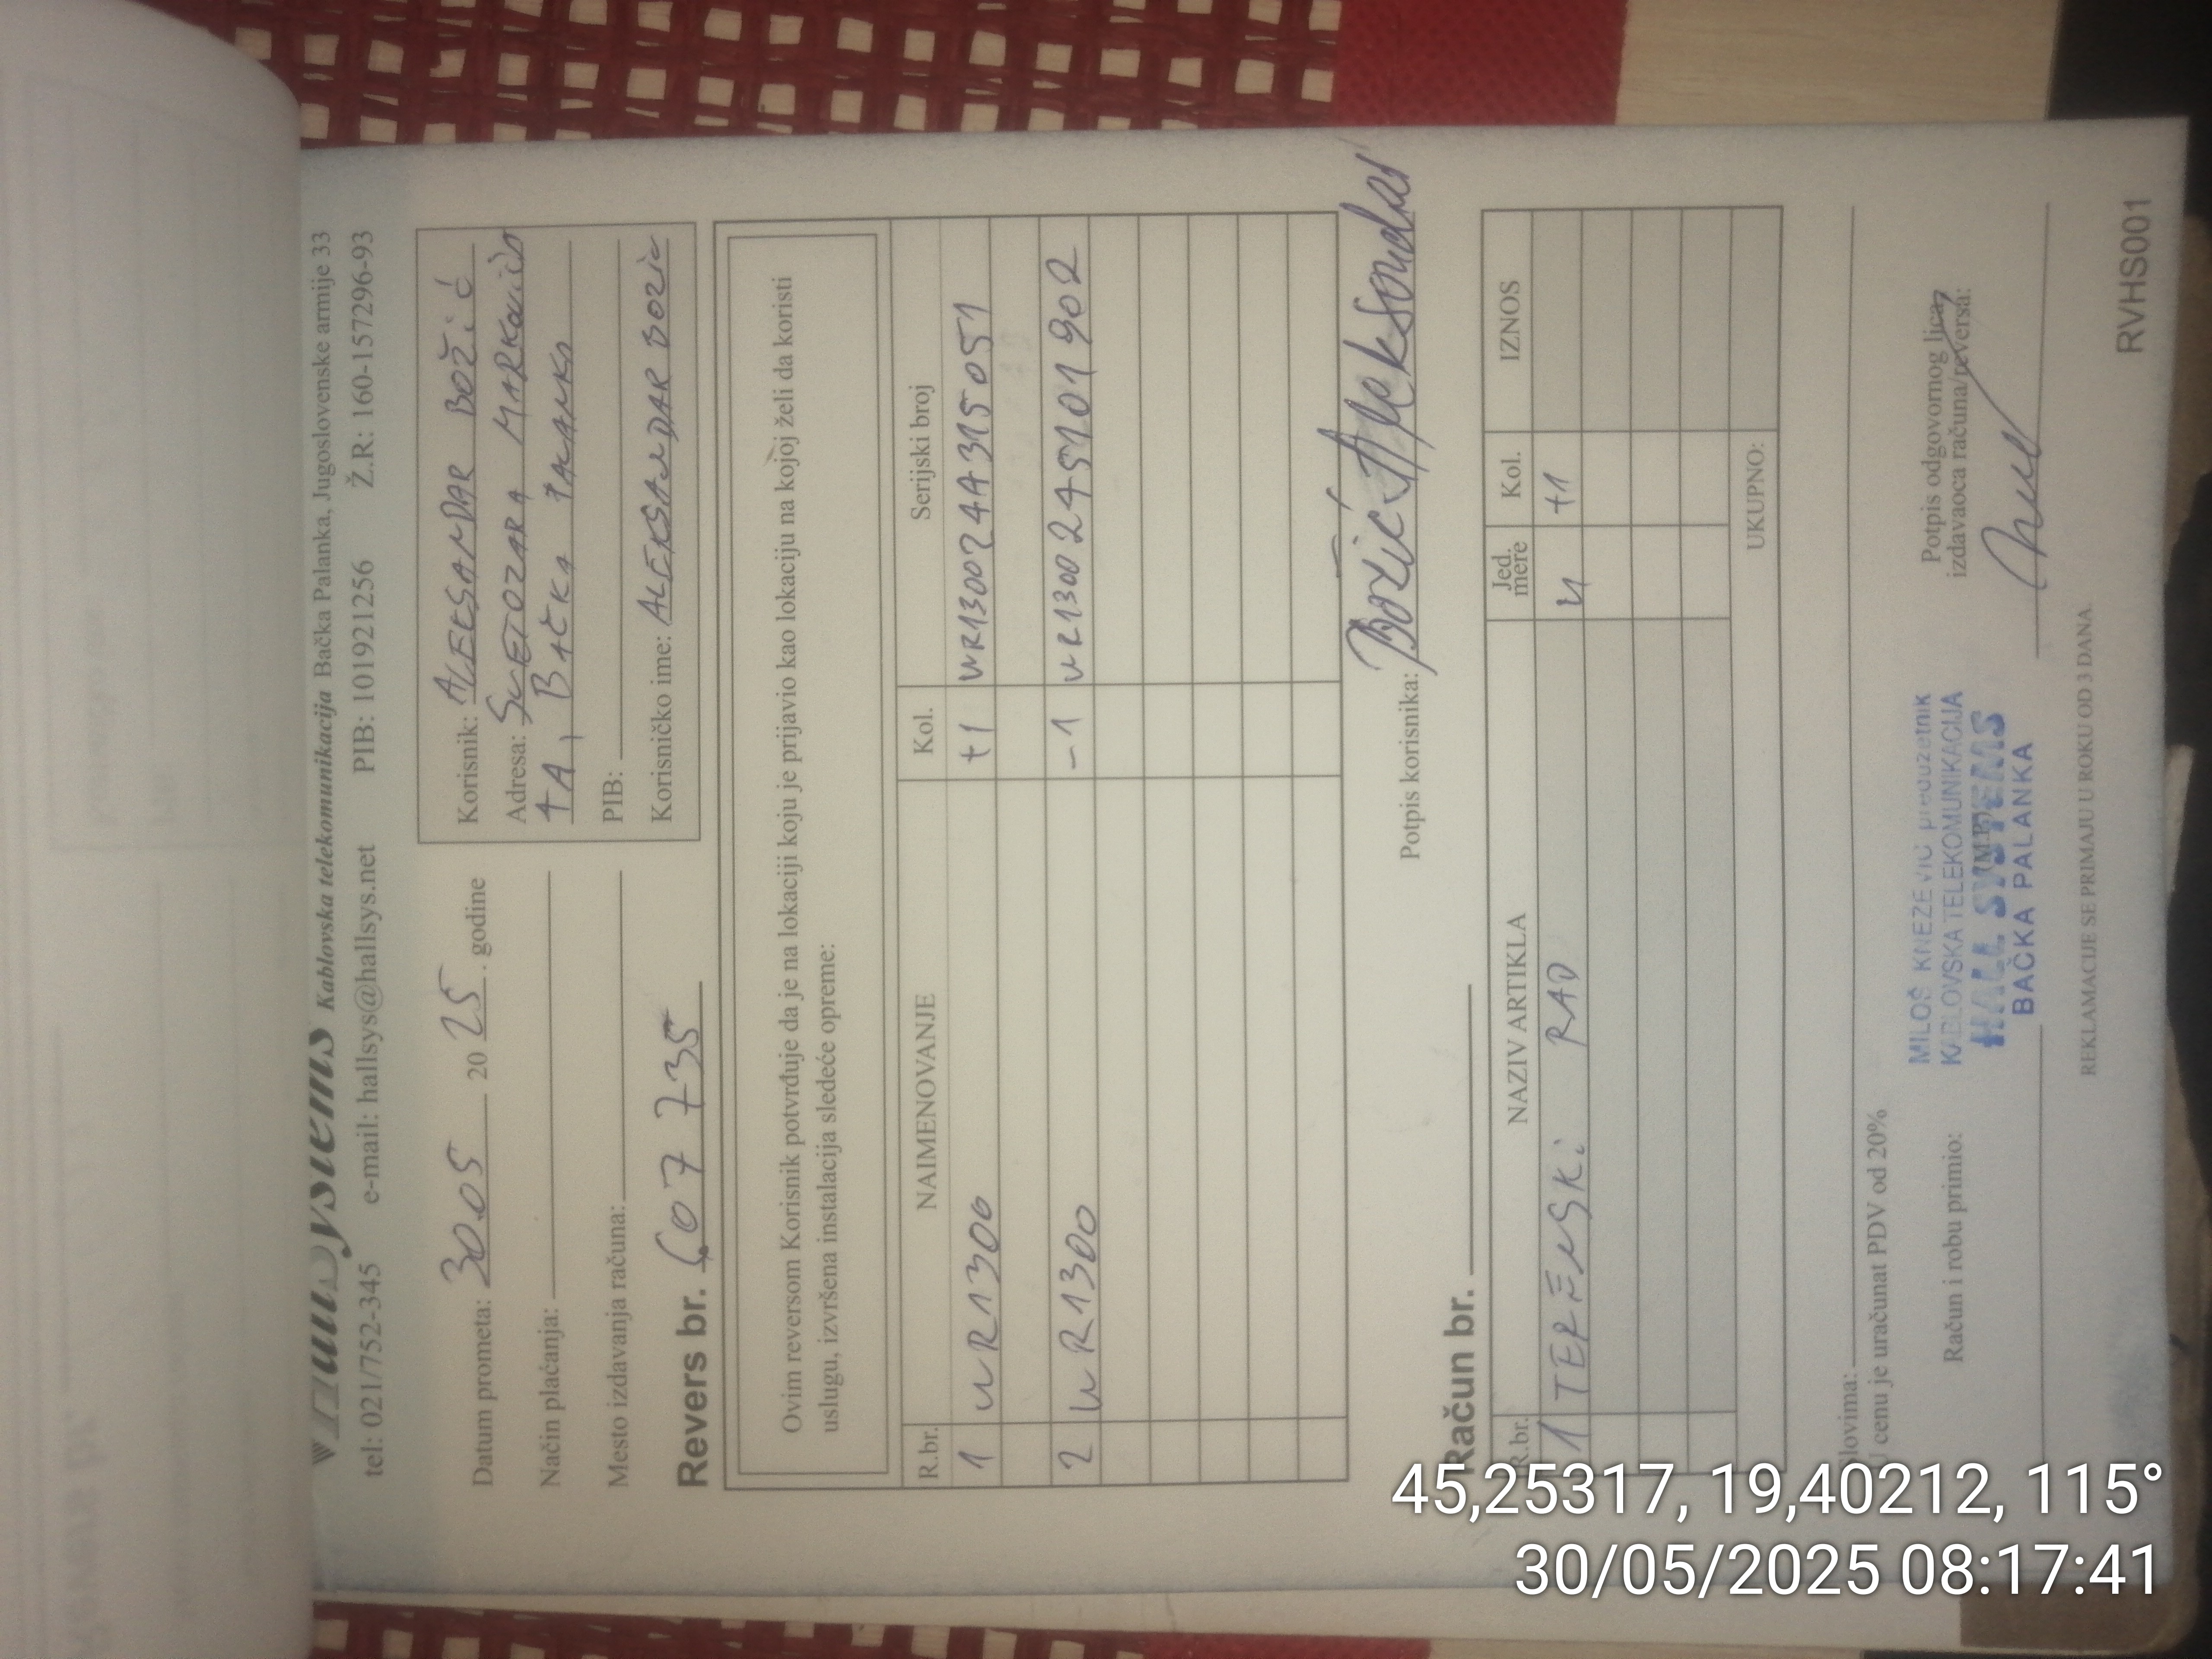 HallSystems Kablovska telekomunikacija Bačka Palanka, Jugoslovenske armije 33
tel: 021/752-345 e-mail: hallsys@hallsys.net PIB: 101921256 Ž.R: 160-157296-93
Datum prometa: 30.05 2025. godine
Način plaćanja:
Mesto izdavanja računa:
Revers br. 607735
Korisnik: ALEKSANDAR BOŽIĆ
Adresa: SVETOZARA MARKOVIĆA
BAČKA PALANKA
PIB:
Korisničko ime: ALEKSANDAR BOZIC
Ovim reversom Korisnik potvrđuje da je na lokaciji koju je prijavio kao lokaciju na kojoj želi da koristi
uslugu, izvršena instalacija sledeće opreme:
R.br. NAIMENOVANJE Kol. Serijski broj
1 WR1300 +1 WR130024A315051
2 WR1300 -1 WR1300245101902
Potpis korisnika: Božić Aleksandar
Račun br.
R.br. NAZIV ARTIKLA Jed. mere Kol. IZNOS
1 TERENSKI RAD +1
UKUPNO:
Slovima:
U cenu je uračunat PDV od 20%
Račun i robu primio:
M.P.
MILOŠ KNEŽEVIĆ preduzetnik
KABLOVSKA TELEKOMUNIKACIJA
HALL SYSTEMS
BAČKA PALANKA
Potpis odgovornog lica,
izdavaoca računa/reversa:
REKLAMACIJE SE PRIMAJU U ROKU OD 3 DANA.
RVHS001
45,25317, 19,40212, 115°
30/05/2025 08:17:41